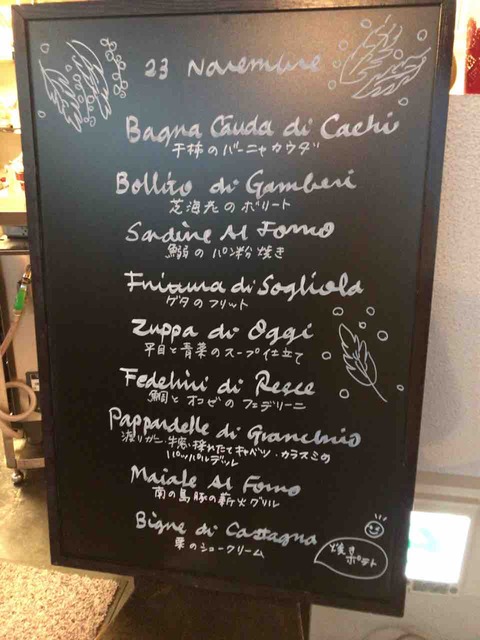 23 Novembre
Bagna Cauda di Cachi
干柿のバーニャカウダ
Bollito di Gamberi
芝海老のボリート
Sardine Al Forno
鰯のパン粉焼き
Frittura di Sogliola
ゲタのフリット
Zuppa di Oggi
平目と青菜のスープ仕立て
Fedelini di Pesce
鯛とオコゼのフェデリーニ
Pappardelle di Granchio
渡りガニ・牛蒡・採れたてキャベツ・カラスミの
パッパルデッレ
Maiale Al Forno
南の島豚の薪火グリル
Bigne di Castagna
栗のシュークリーム
焼き
ポテト